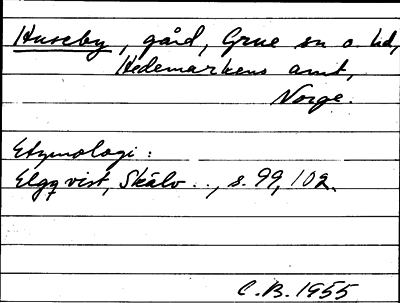 Huseby, gård, Grue sn o. hd,
Hedemarkens amt,
Norge.
Etymologi:
Elgqvist, Skälv.., s. 99, 102.
C.B. 1955